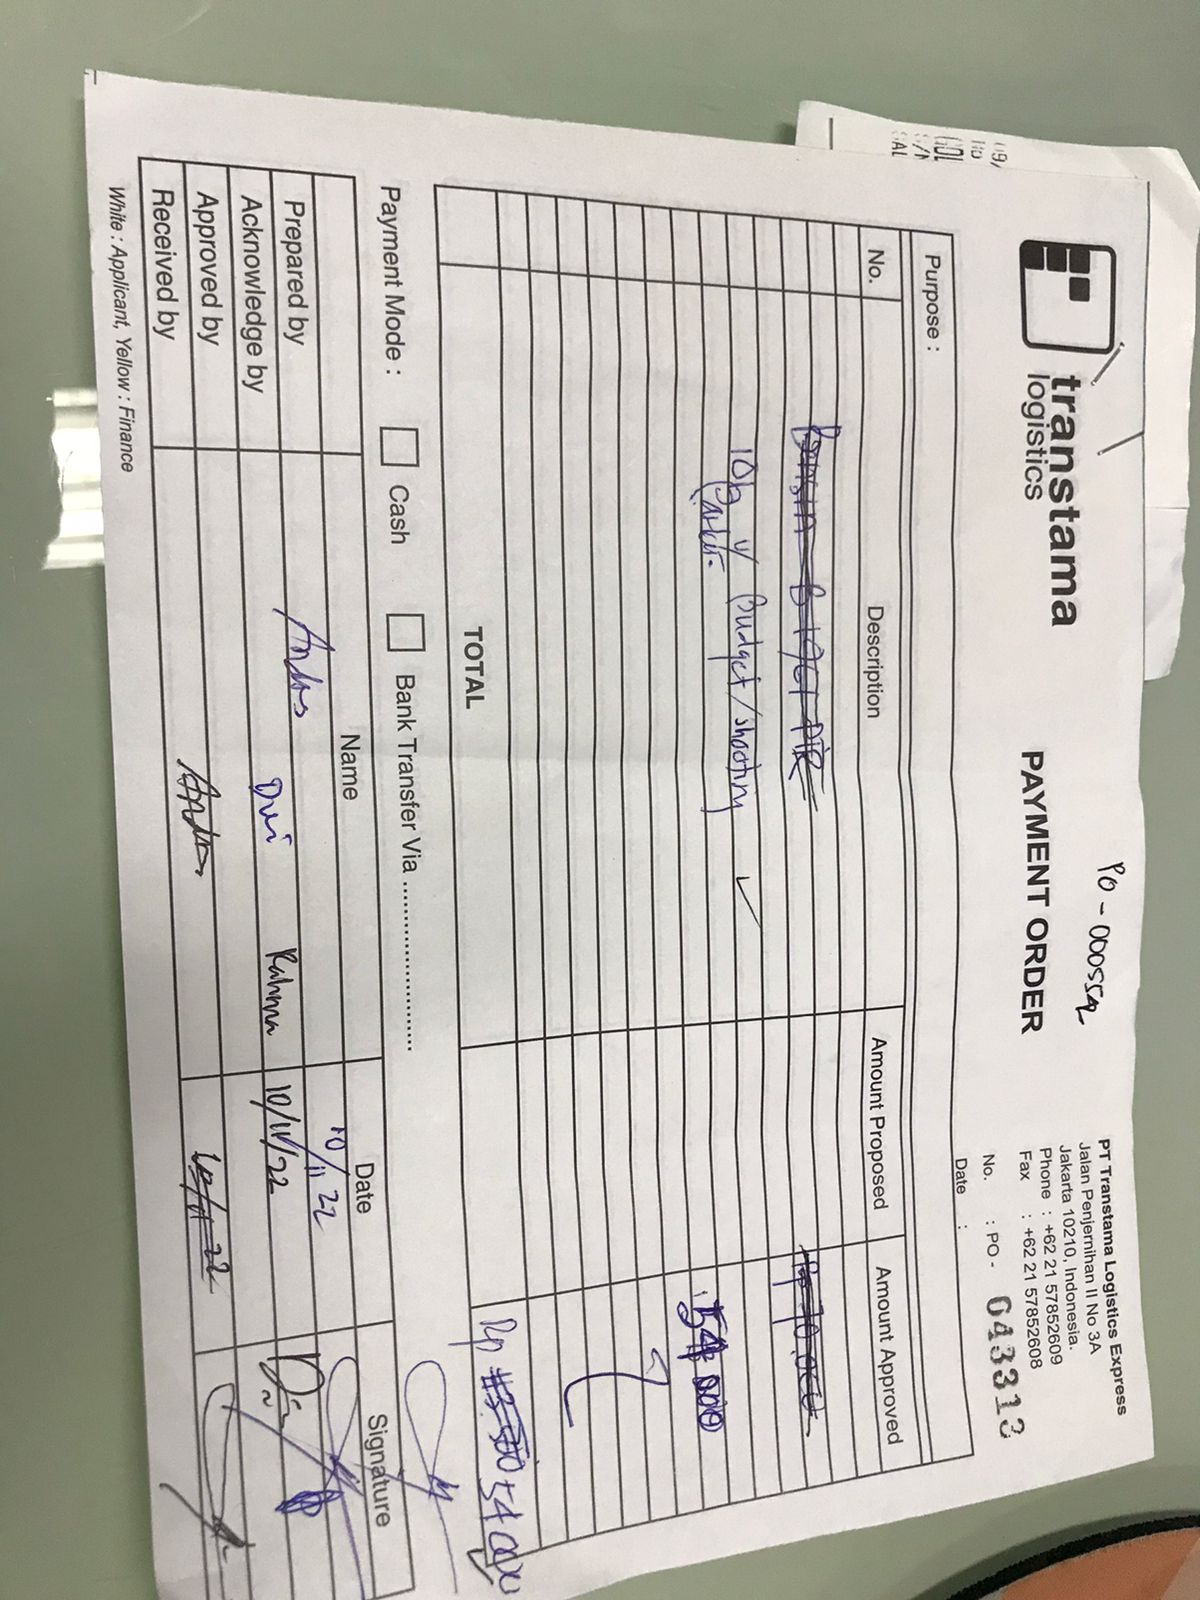 transtama
logistics
PO - 000552
PAYMENT ORDER
PT Transtama Logistics Express
Jalan Penjernihan II No 3A
Jakarta 10210, Indonesia.
Phone : +62 21 57852609
Fax : +62 21 57852608
No. : PO - 043313
Date :
Purpose :
No. Description Amount Proposed Amount Approved
Rp 70.000
Budget/shooting
Parkir 54 000
TOTAL Rp 54 000
Payment Mode : Cash Bank Transfer Via ........................
Name Date Signature
Prepared by 10/11 22
Acknowledge by Dwi Rahma 10/11/22
Approved by
Received by
White : Applicant, Yellow : Finance
09,
GOL
SAL